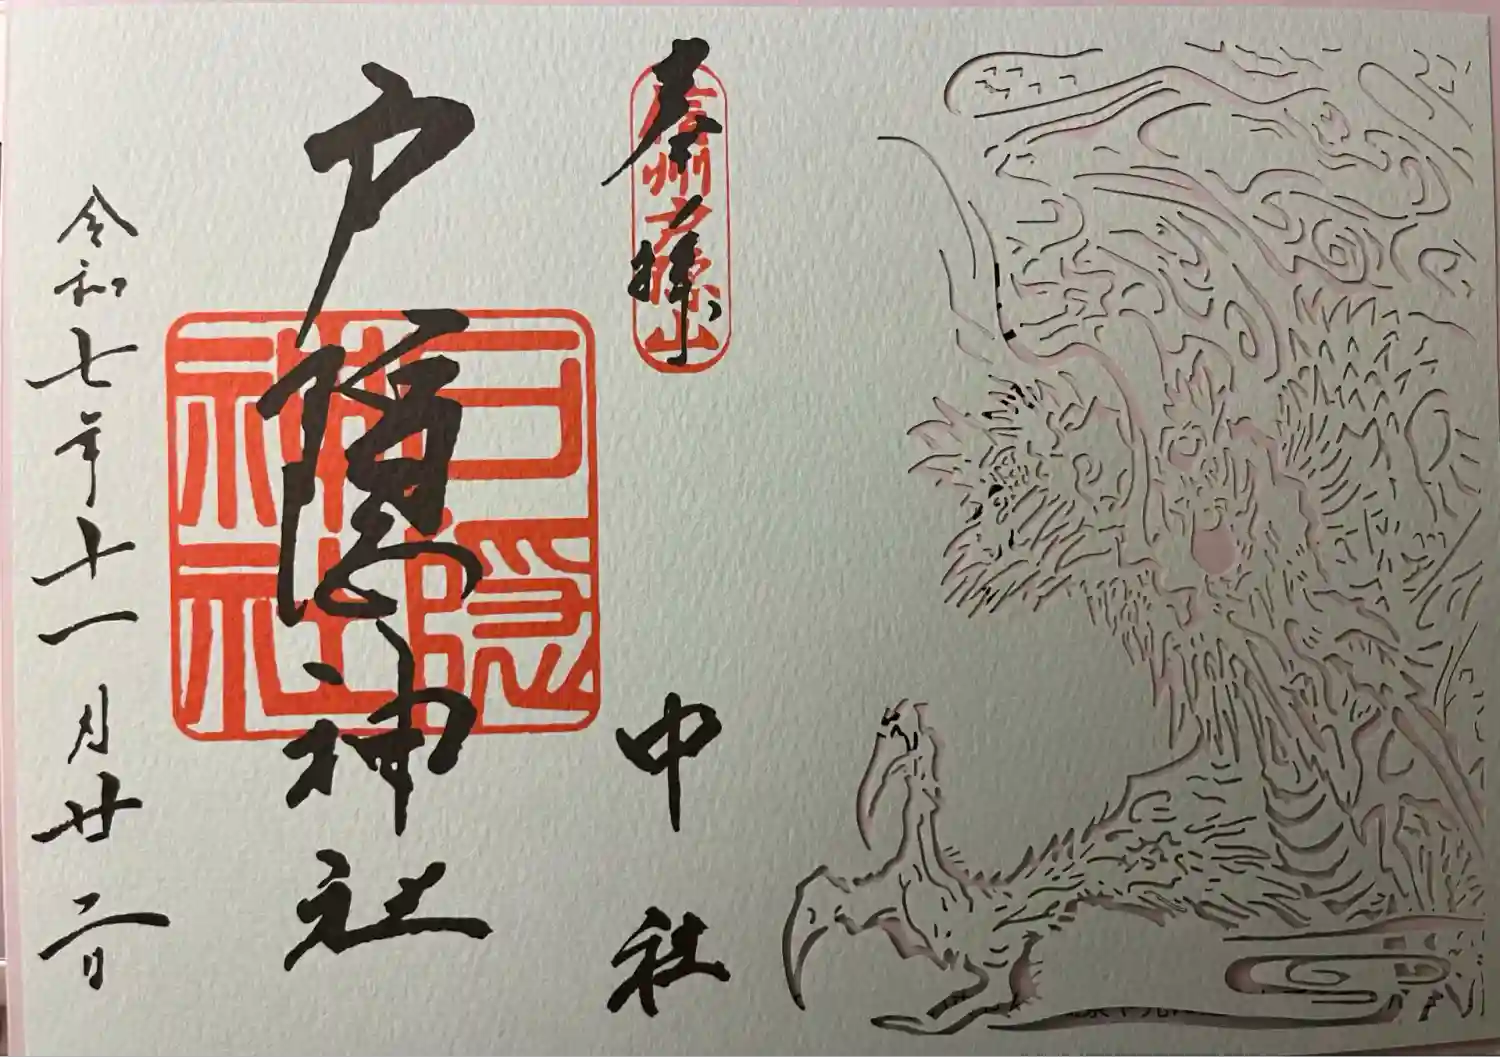 奉拝
信州戸隠山
中社
戸隠神社
戸隠
神社
令和七年十一月廿二日